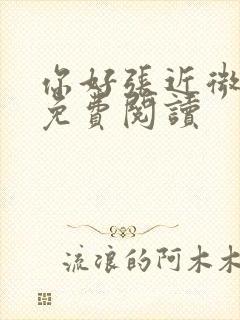 你好張近微
免費閱讀
流浪的阿木木